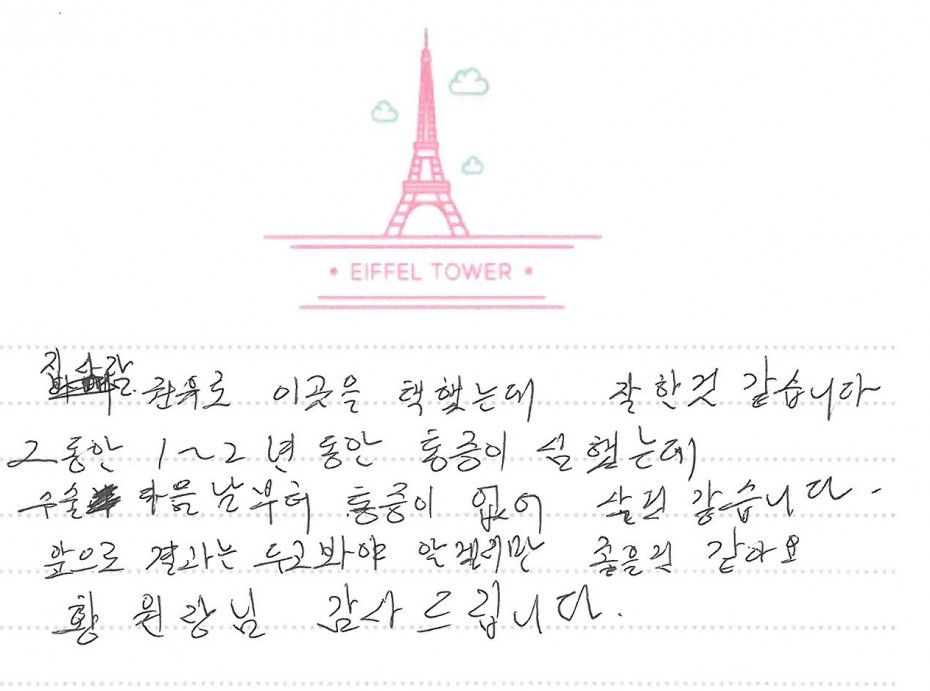 • EIFFEL TOWER •
집사람 권유로 이곳을 택했는데 잘한것 같습니다
그동안 1~2년 동안 통증이 심했는데
수술 다음날부터 통증이 없어 살것 같습니다.
앞으로 결과는 두고봐야 알겠지만 좋을것 같아요
황 원장님 감사드립니다.